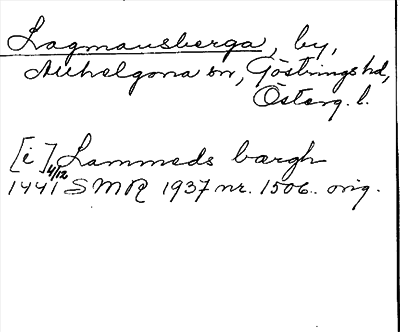 Lagmansberga, by,
Allhelgona sn, Göstrings hd,
Österg. l.
[i] Lammeds bærgh
4/12
1441 SMR 1937 nr. 1506. orig.